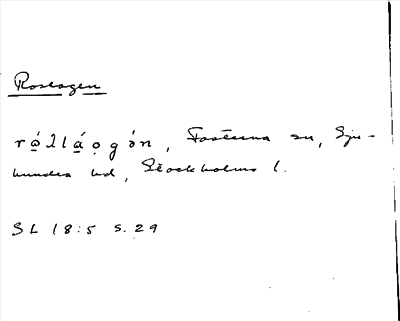 Roslagen
rǻlláọgȯn, Fasterna sn, Sju-
hundra hd, Stockholms l.
SL 18:5 s. 29